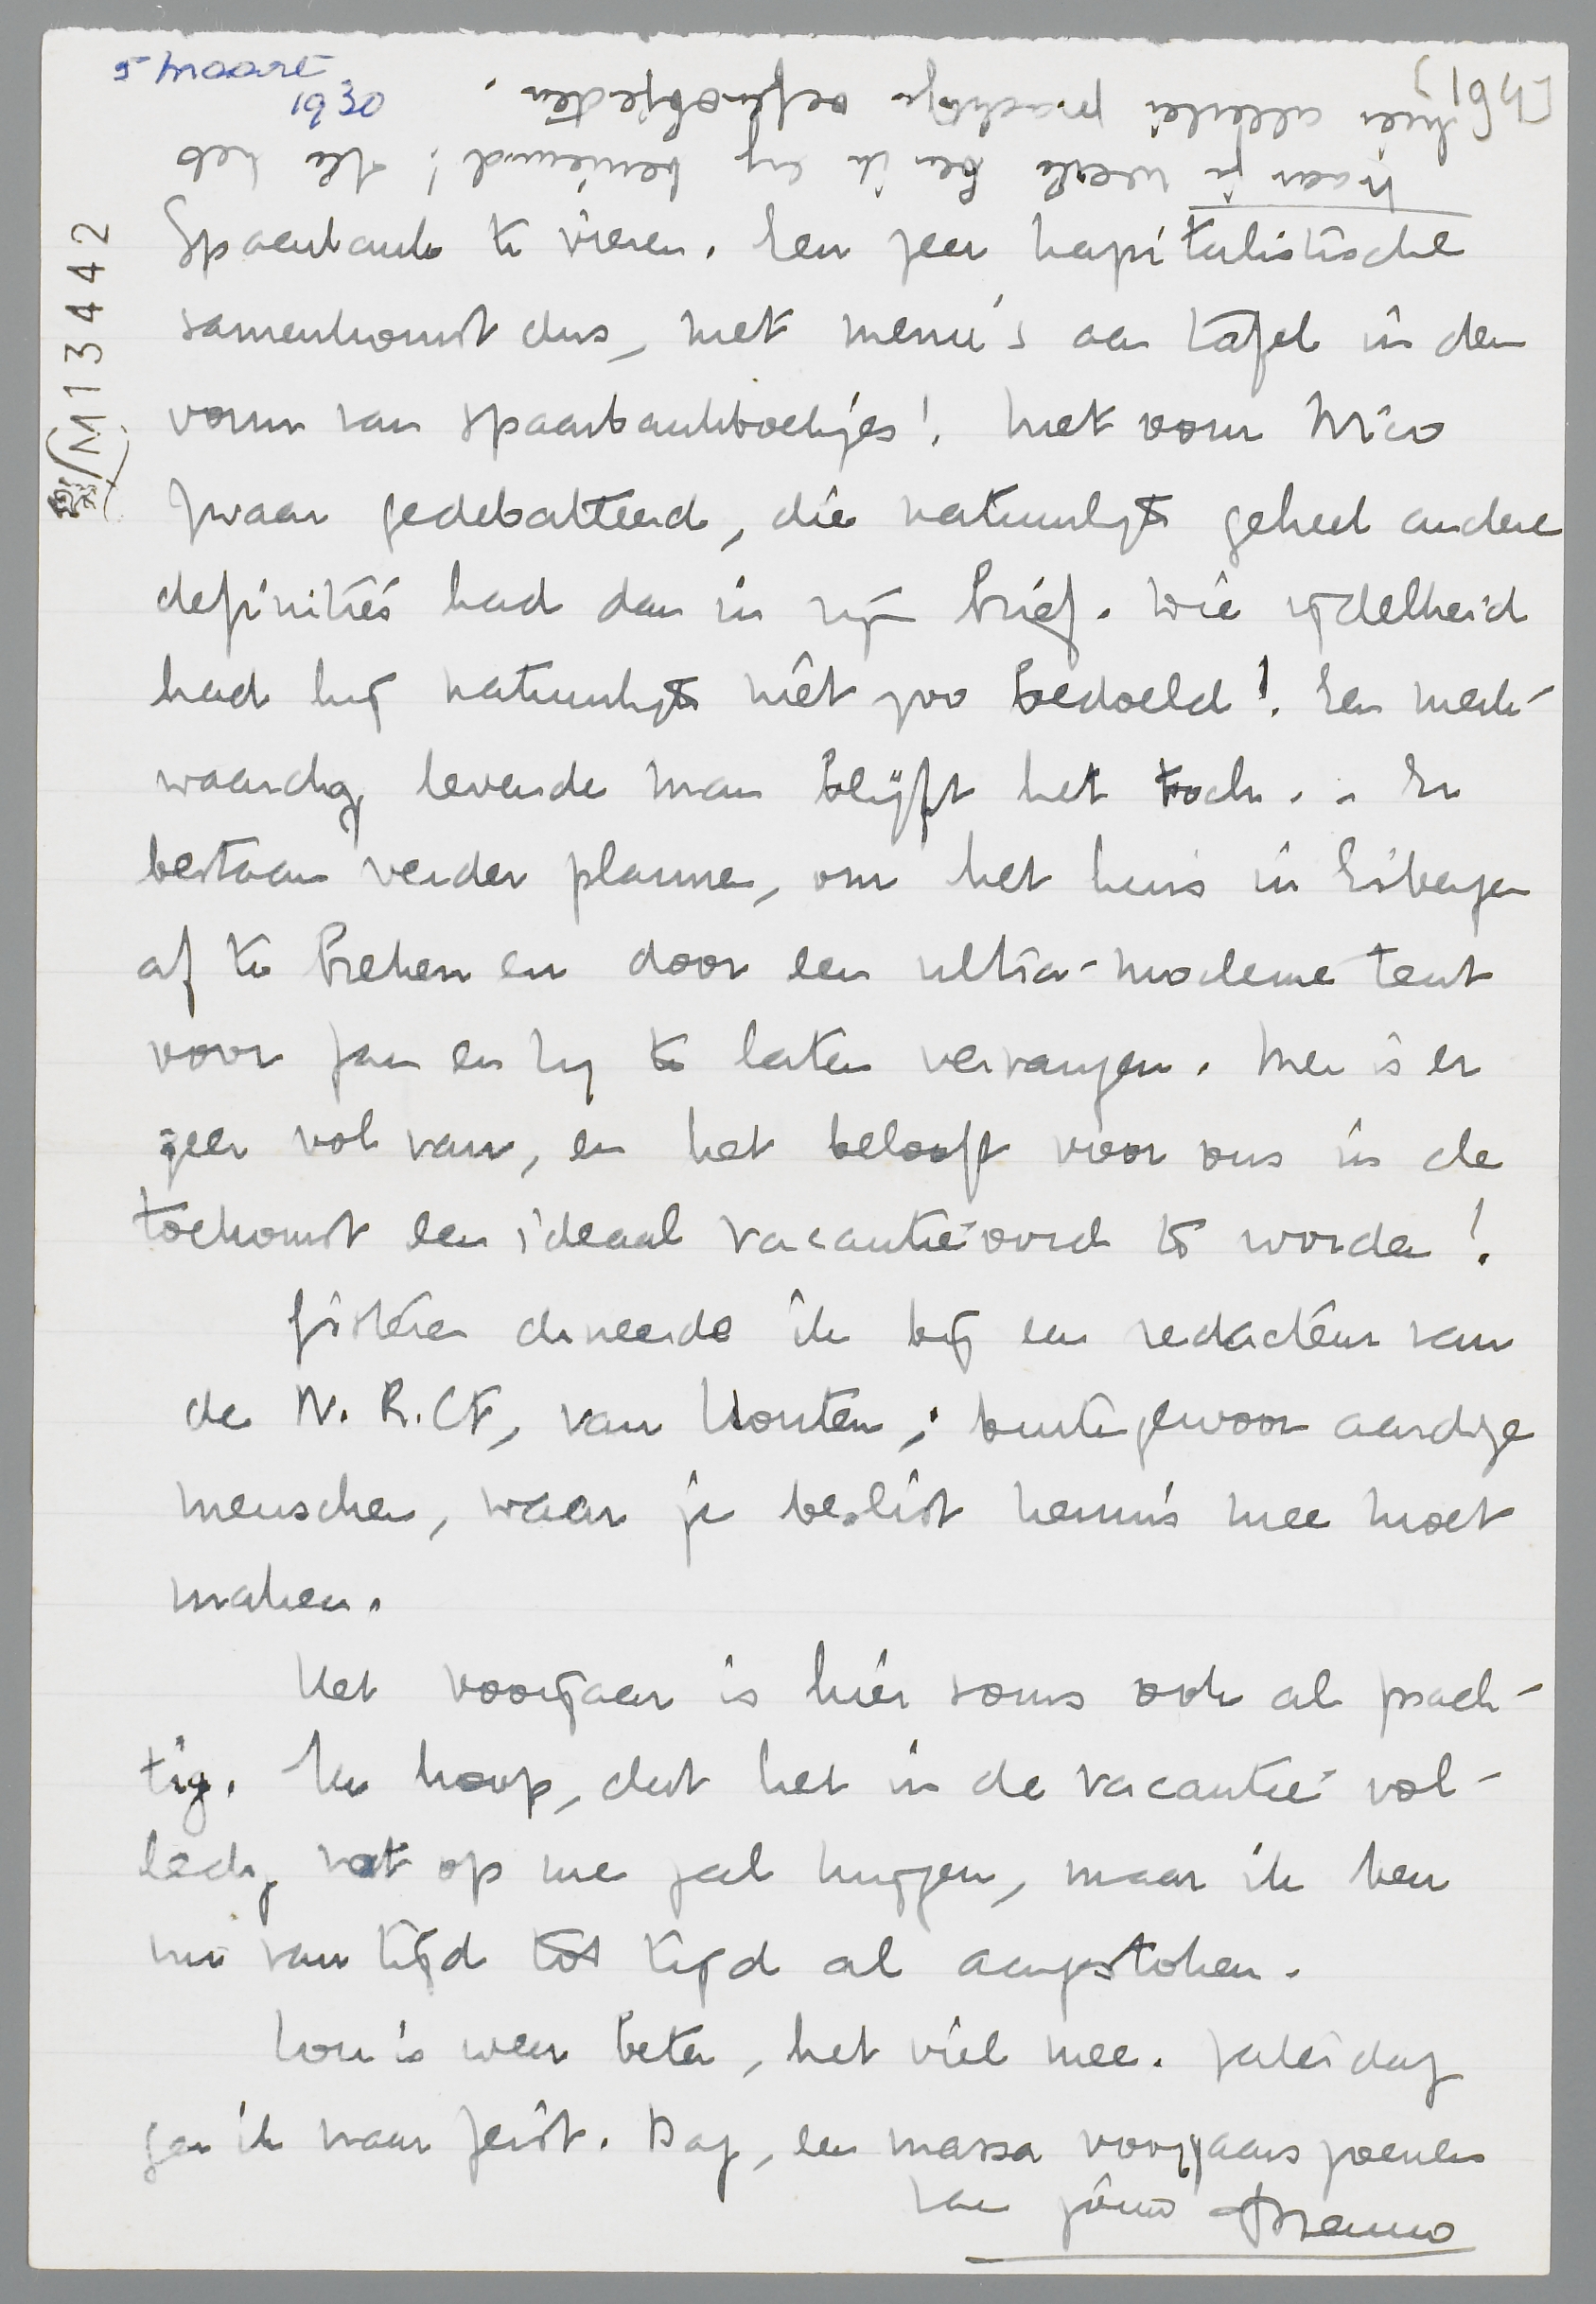 5 maart
1930
[46]
Naar je werk ben ik erg benieuwd! Ik heb
hier allerlei prachtige oefenobjecten.
M13442
Spaarbank te vieren. Een zeer kapitalistische
samenkomst dus, met menu's aan tafel in den
vorm van spaarbankboekjes! Met oom Nico
zwaar gedebatteerd, die natuurlijk geheel andere
definities had dan in zijn brief. Die ijdelheid
had hij natuurlijk niet zoo bedoeld! Een merk-
waardig levende man blijft het toch. - Er
bestaan verder plannen, om het huis in Eibergen
af te breken en door een ultra-moderne tent
voor Jan en Zus te laten vervangen. Men is er
zeer vol van, en het belooft voor ons in de
toekomst een ideaal vacantieoord te worden!
Gisteren dineerde ik bij een redacteur van
de N.R.Ct, van Houten; buitengewoon aardige
menschen, waar je beslist kennis mee moet
maken.
Het voorjaar is hier soms ook al prach-
tig. Ik hoop, dat het in de vacantie vol-
ledig vat op me zal krijgen, maar ik ben
nu van tijd tot tijd al aangestoken.
Lou is weer beter, het viel mee. Zaterdag
ga ik naar Zeist. Dag, een massa voorjaarszoenen
van jouw Menno